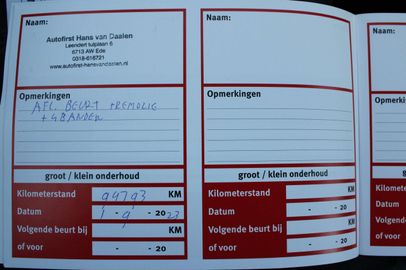 Naam:
Autofirst Hans van Daalen
Leendert tulplaan 6
6713 AW Ede
0318-616721
www.autofirst-hansvandaalen.nl
Opmerkingen
AFL. BEURT + REMOLIE
+ 4 BANDEN
groot / klein onderhoud
Kilometerstand 94793 KM
Datum 1 - 9 - 2023
Volgende beurt bij KM
of voor - - 20
Naam:
Opmerkingen
groot / klein onderhoud
KM
- - 20
KM
- - 20
Naam:
Opmerk
gro
Kilomete
Datum
Volgende
of voor